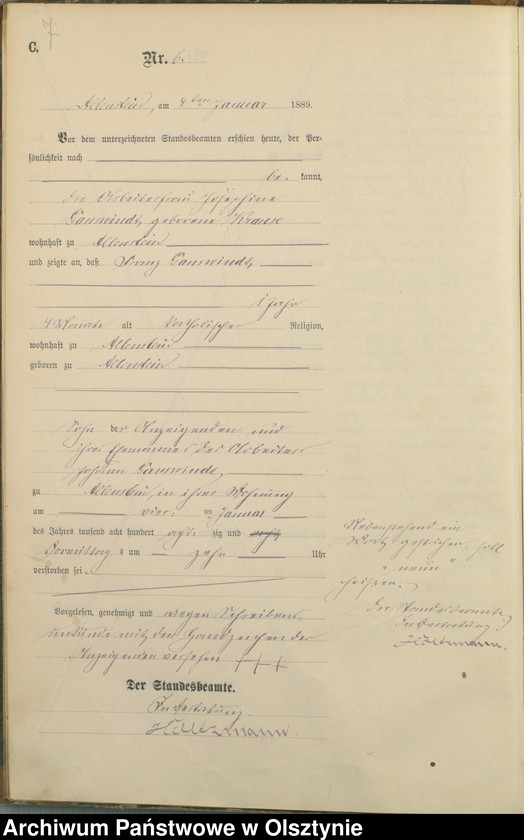 C. 7
Nr. 6.
Allenstein, am 4ten Januar 1889.
Vor dem unterzeichneten Standesbeamten erschien heute, der Per-
sönlichkeit nach
be kannt,
die Arbeiterfrau Josephine
Ganswindt, geborene Krause
wohnhaft zu Allenstein
und zeigte an, daß Franz Ganswindt,
1 Jahr
4 Monate alt katholischer Religion,
wohnhaft zu Allenstein
geboren zu Allenstein
Sohn der Anzeigenden und
ihres Ehemannes des Arbeiters
Johann Ganswindt,
zu Allenstein, in ihrer Wohnung
am vier ten Januar
des Jahres tausend acht hundert acht zig und acht
Vormittags um zehn Uhr
verstorben sei.
Vorgelesen, genehmigt und wegen Schreibens-
unkunde mit den Handzeichen der
Anzeigenden versehen +++
Der Standesbeamte.
In Vertretung
Holtzmann.
Nebenstehend ein
Wort gestrichen, soll
"neun"
heißen.
Der Standesbeamte
In Vertretung
Holtzmann.
Archiwum Państwowe w Olsztynie